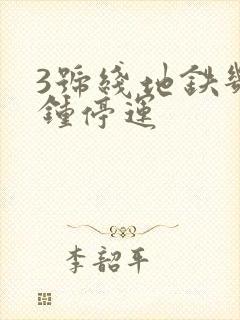 3號綫地鉄幾
鍾停運
李韶平